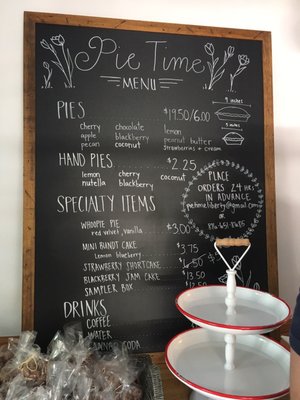 Pie Time
MENU
PIES $19.50/6.00
9 inches
5 inches
cherry chocolate lemon
apple blackberry peanut butter
pecan coconut strawberries + cream
HAND PIES $2.25
lemon cherry coconut
nutella blackberry
PLACE
ORDERS 24 hrs
IN ADVANCE
SPECIALTY ITEMS
WHOOPIE PIE $3.00
red velvet, vanilla
MINI BUNDT CAKE $3.75
Lemon blueberry
STRAWBERRY SHORTCAKE
BLACKBERRY JAM CAKE
SAMPLER BOX
DRINKS
COFFEE
WATER
SODA